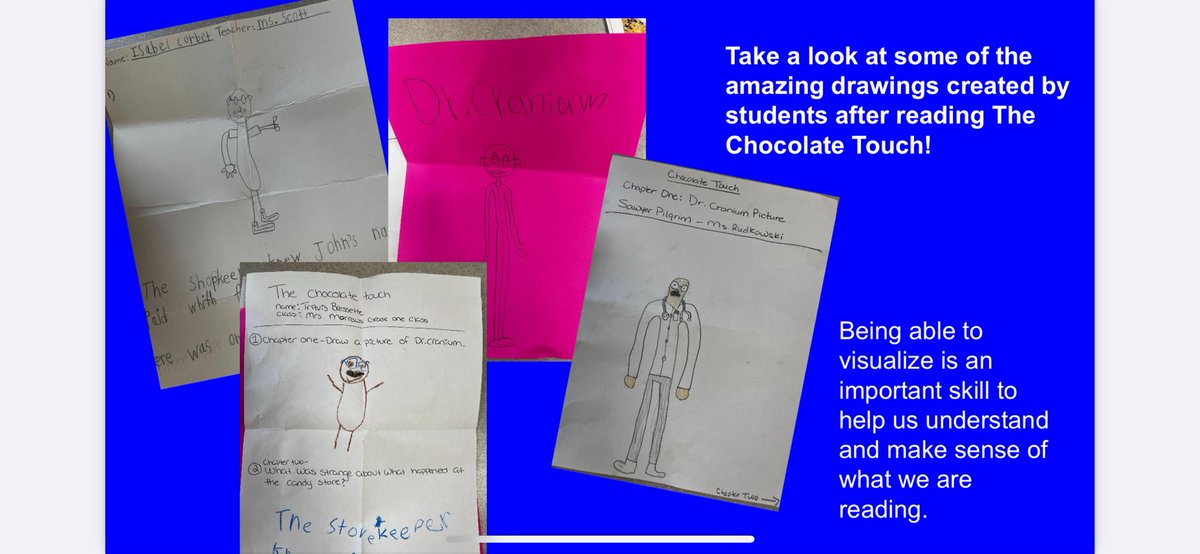 Name: Isabel Corbet Teacher: Ms. Scott
1)
The Shopkee knew John's na
Paid whith
ere was on
Dr. Cranium
Take a look at some of the
amazing drawings created by
students after reading The
Chocolate Touch!
Chocolate Touch
Chapter One: Dr. Cranium Picture
Sawyer Pilgrim - Ms Rudkowski
Chapter Two →
The Chocolate touch
name: Travis Bessette
class: Mrs. Marrows Grade one class
① Chapter one - Draw a picture of Dr. Cranium.
Chapter two-
② What was strange about what happened at
the candy store?
The storekeeper
Being able to
visualize is an
important skill to
help us understand
and make sense of
what we are
reading.